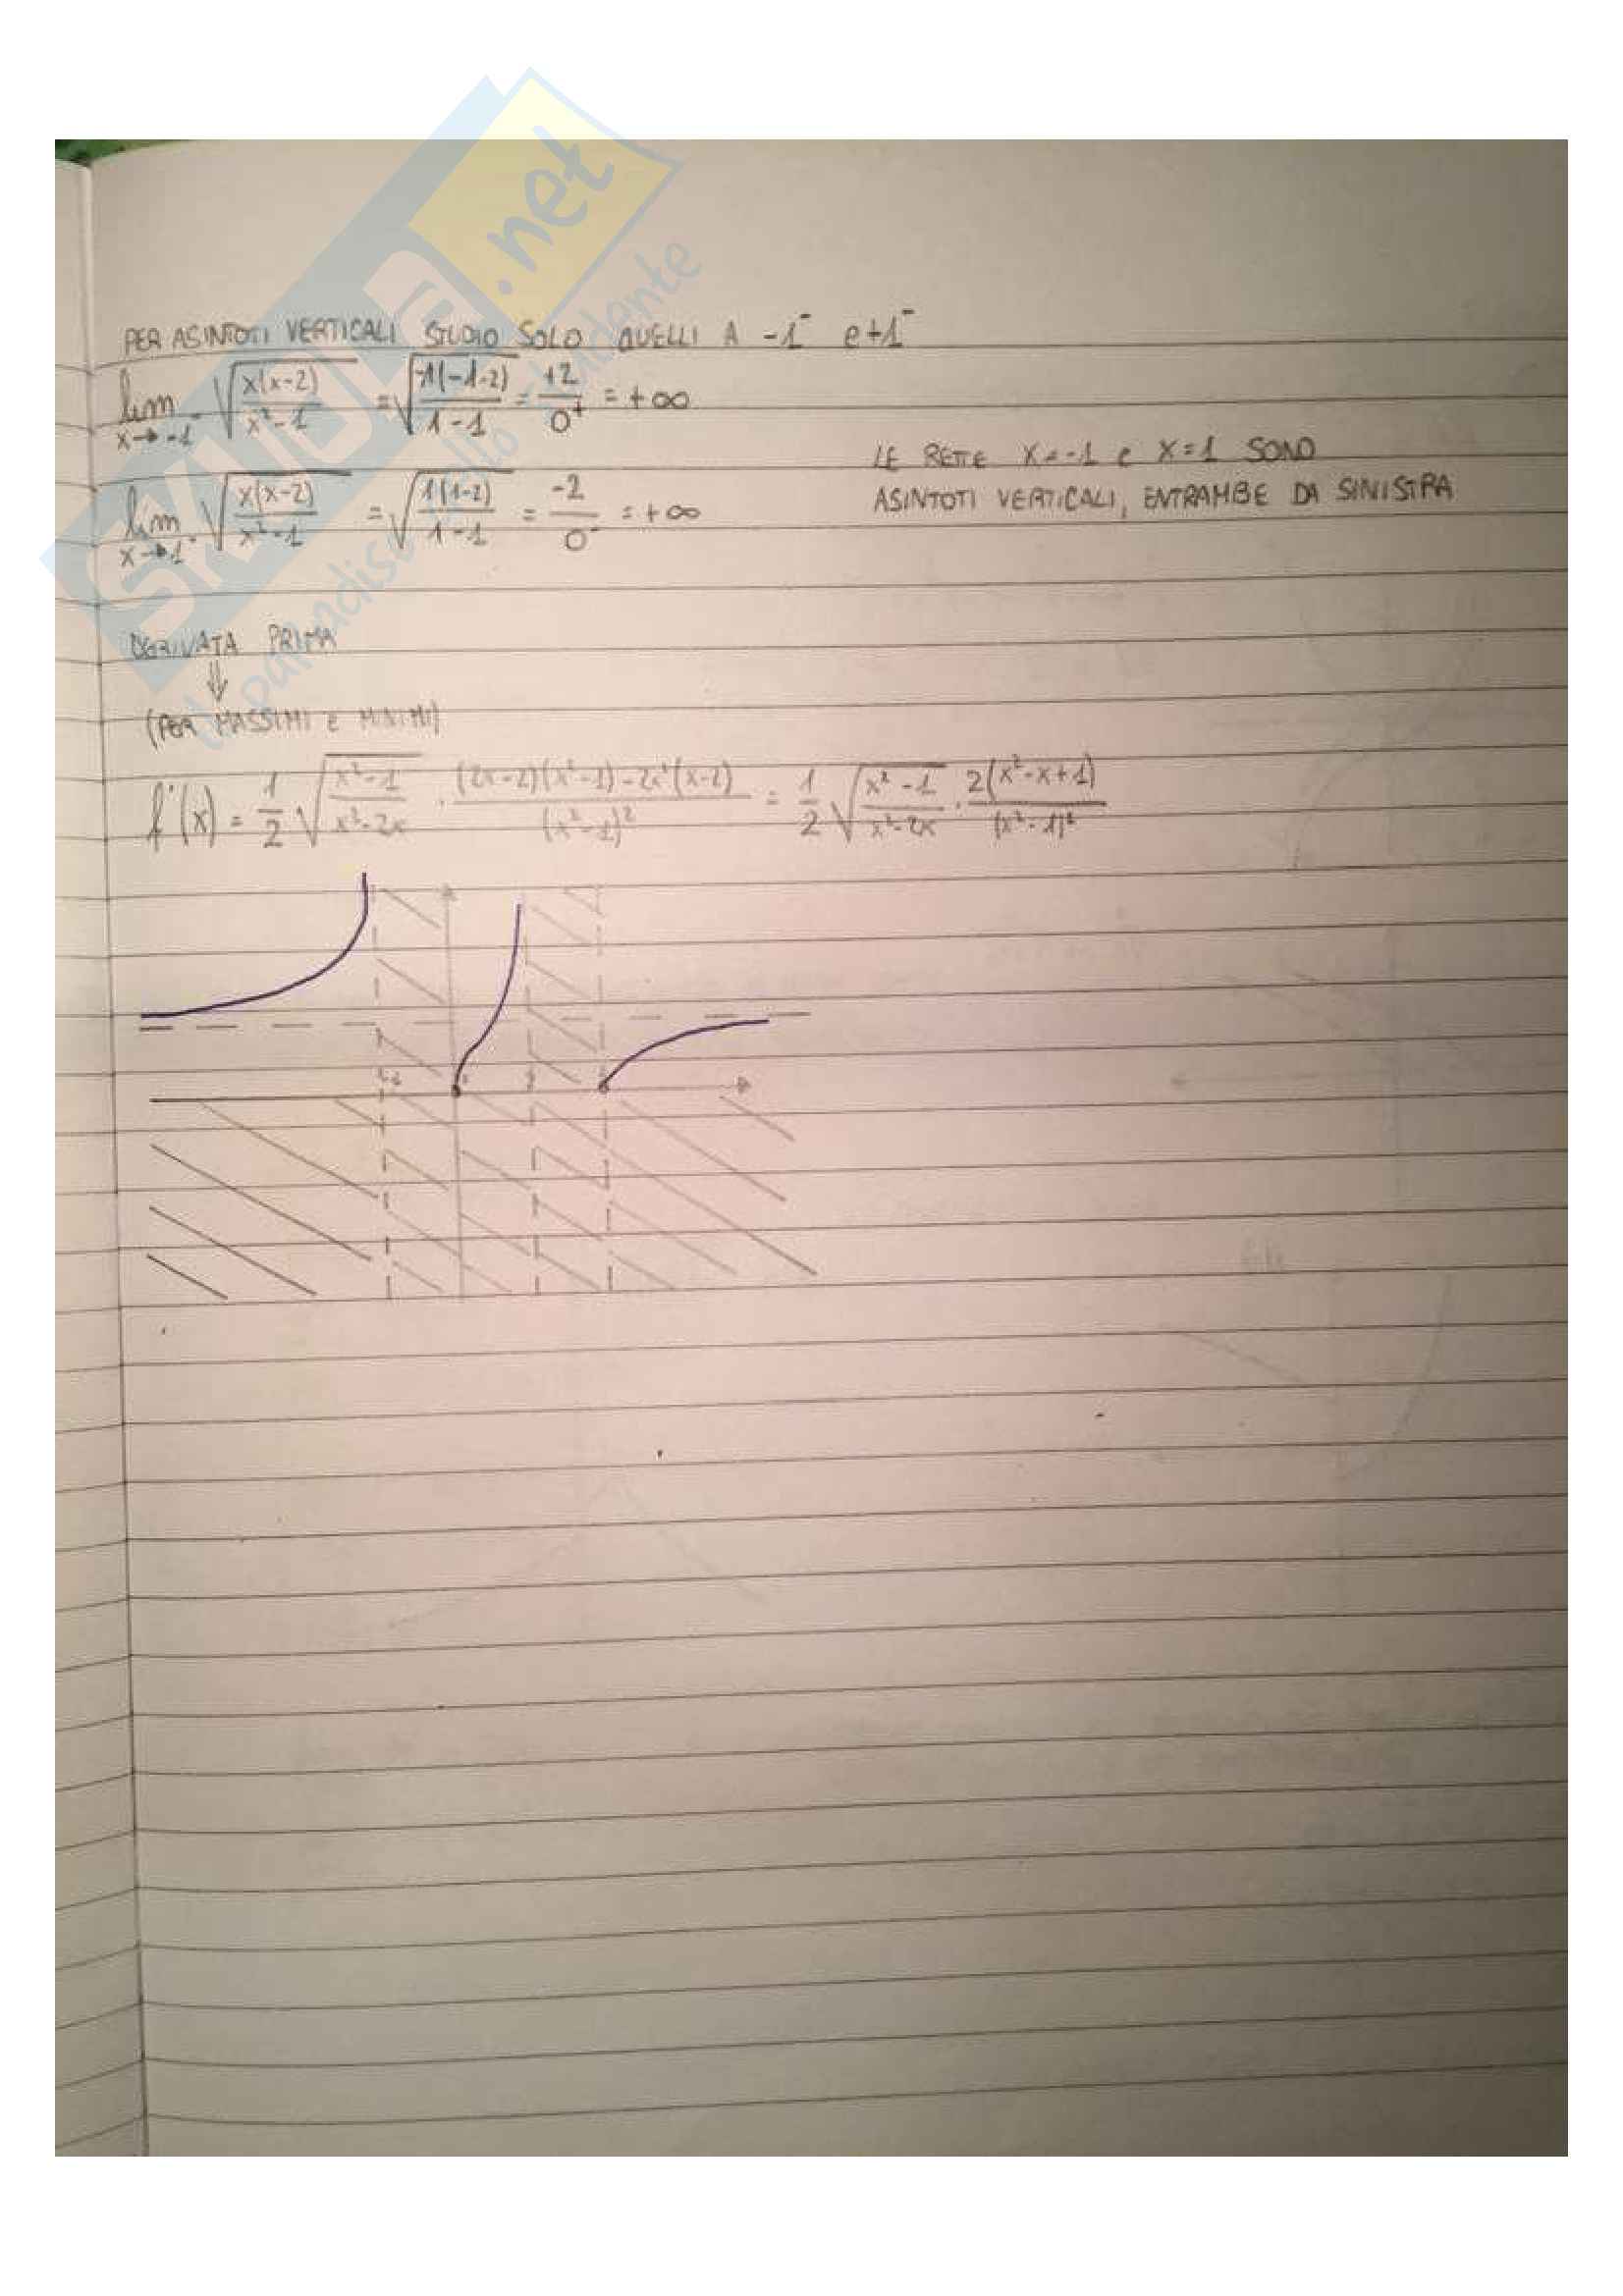 SKUOLA.net
Il paradiso dello studente
PER ASINTOTI VERTICALI STUDIO SOLO QUELLI A -1⁻ e +1⁻
lim x→-1⁻ √(x(x-2)/(x²-1)) = √(-1(-1-2)/(1-1)) = +2/0⁺ = +∞
LE RETTE X=-1 e X=1 SONO
ASINTOTI VERTICALI, ENTRAMBE DA SINISTRA
lim x→1⁻ √(x(x-2)/(x²-1)) = √(1(1-2)/(1-1)) = -2/0⁻ = +∞
DERIVATA PRIMA
⇓
(PER MASSIMI E MINIMI)
f'(x) = 1/2 √((x²-1)/(x²-2x)) · ((2x-2)(x²-1)-2x²(x-2))/(x²-1)² = 1/2 √((x²-1)/(x²-2x)) · 2(x²-x+1)/(x²-1)²